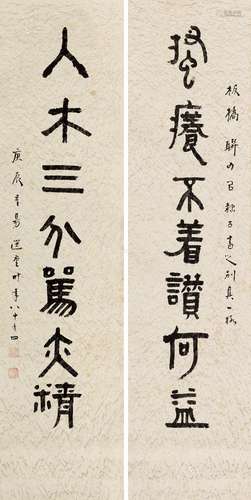 板橋聯書之別具一格
搔癢不着讚何益
入木三分罵亦精
庚辰選堂時年八十有四